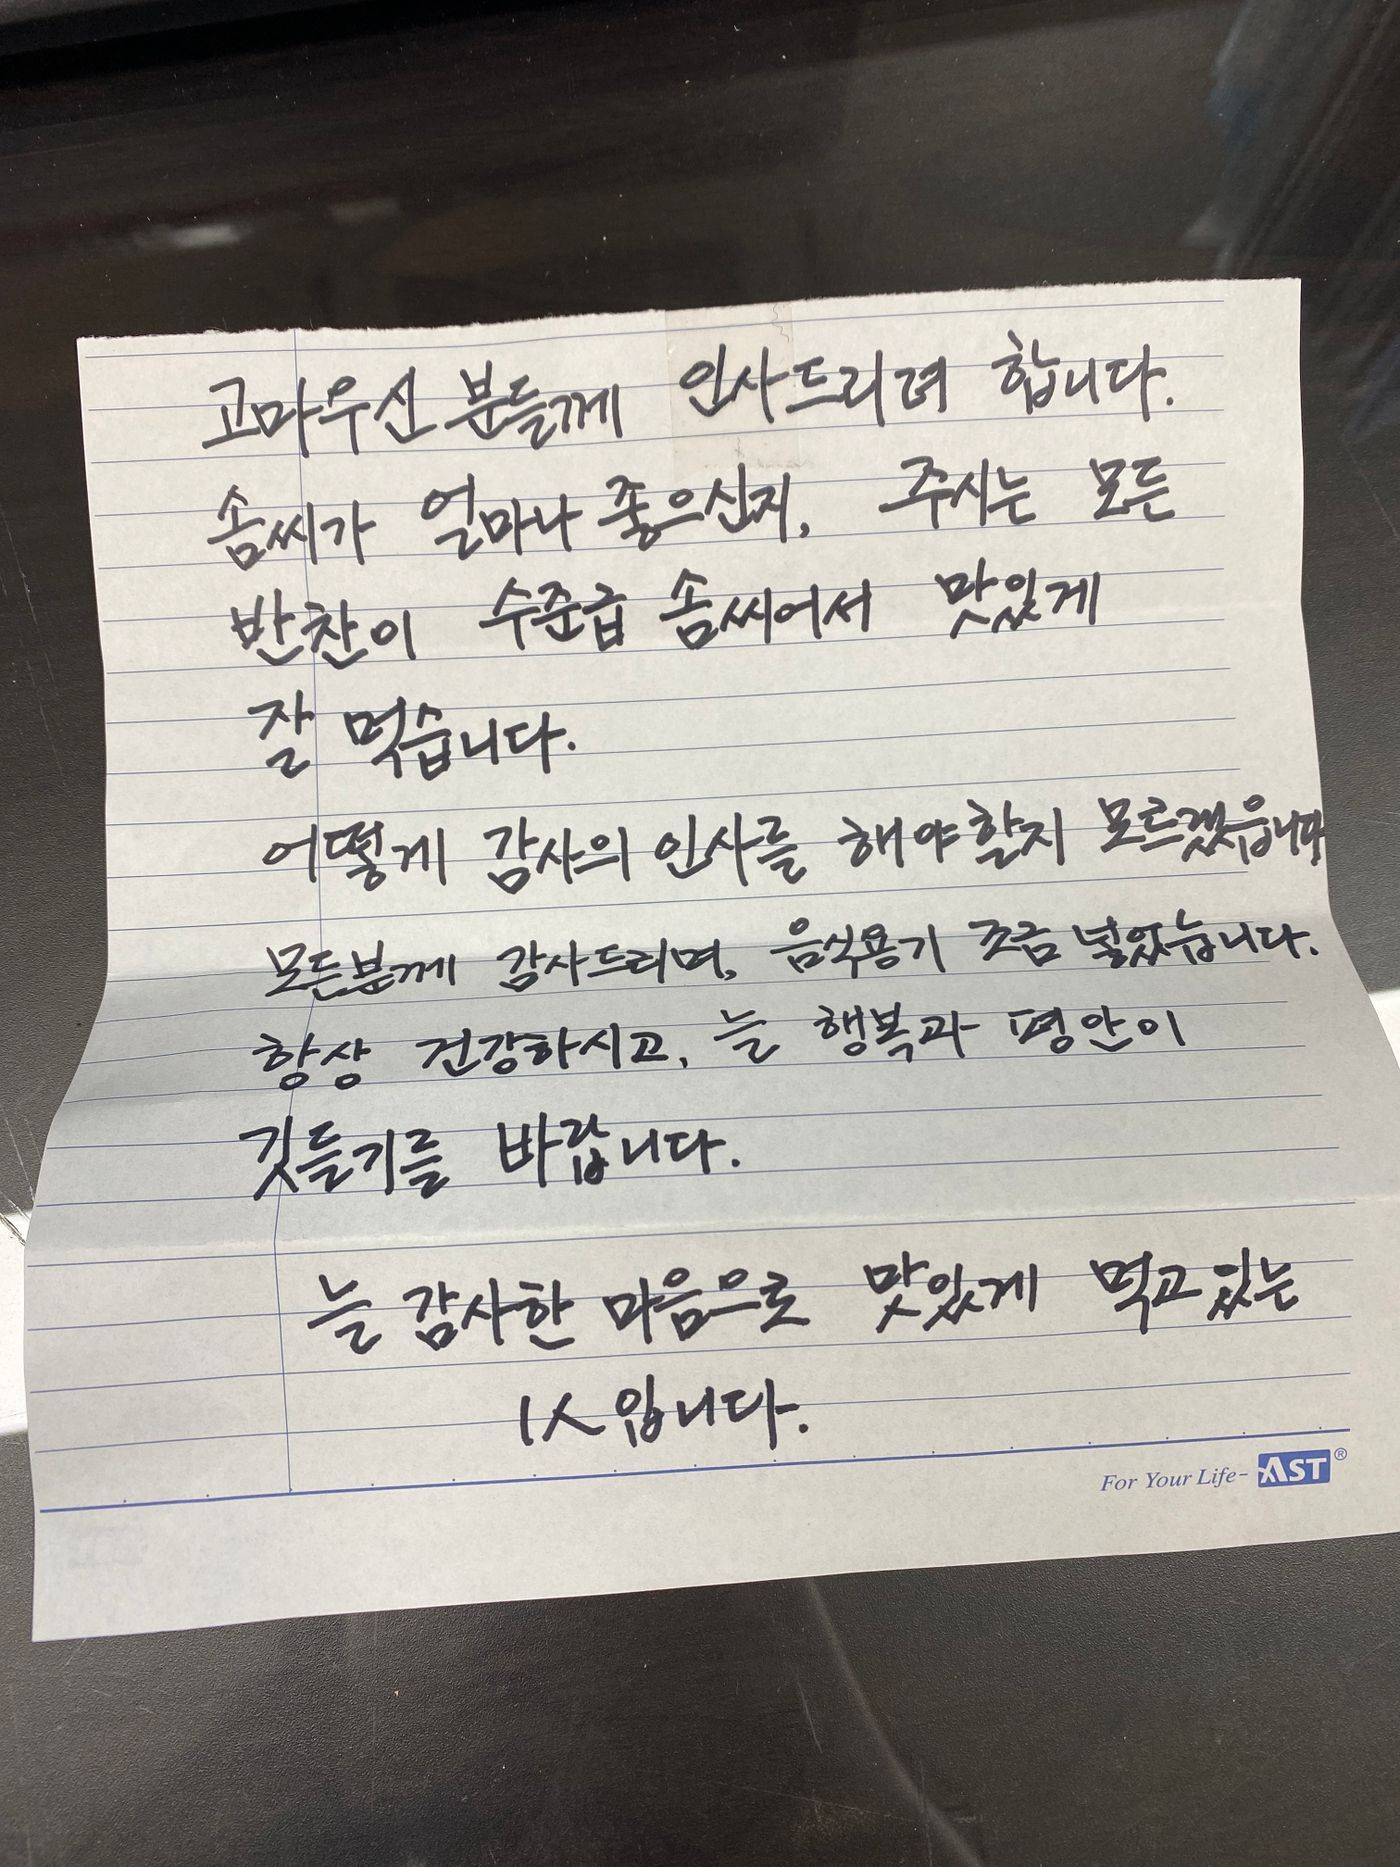 고마우신 분들께 인사드리려 합니다.
솜씨가 얼마나 좋으신지, 주시는 모든
반찬이 수준급 솜씨어서 맛있게
잘 먹습니다.
어떻게 감사의 인사를 해야할지 모르겠읍니다
모든분께 감사드리며, 음식용기 조금 넣었습니다.
항상 건강하시고, 늘 행복과 평안이
깃들기를 바랍니다.
늘 감사한 마음으로 맛있게 먹고 있는
1人입니다.
For Your Life- AST®